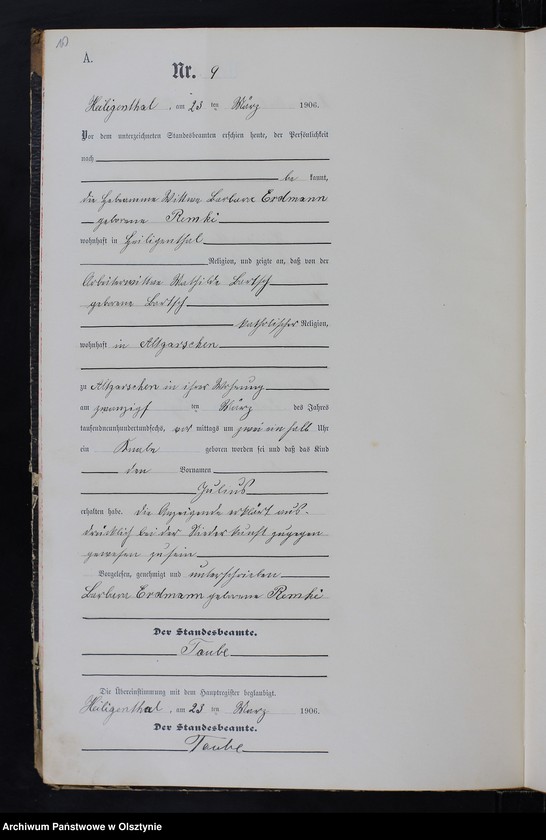 A.
Nr. 9
Heiligenthal, am 23 ten März 1906.
Vor dem unterzeichneten Standesbeamten erschien heute, der Persönlichkeit
nach
be kannt,
die Hebamme Wittwe Barbara Erdmann
geborene Remki
wohnhaft in Heiligenthal
Religion, und zeigte an, daß von der
Arbeiterwittwe Mathilde Bartsch
geborene Bartsch
katholischer Religion,
wohnhaft in Altgarschen
zu Altgarschen in ihrer Wohnung
am zwanzigsten März des Jahres
tausendneunhundertundsechs, vor mittags um zwei ein halb Uhr
ein Knabe geboren worden sei und daß das Kind
den Vornamen
Julius
erhalten habe. Die Anzeigende erklärt aus-
drücklich bei der Niederkunft zugegen
gewesen zu sein
Vorgelesen, genehmigt und unterschrieben
Barbara Erdmann geborene Remki
Der Standesbeamte.
Taube
Die Übereinstimmung mit dem Hauptregister beglaubigt.
Heiligenthal, am 23 ten März 1906.
Der Standesbeamte.
Taube
Archiwum Państwowe w Olsztynie